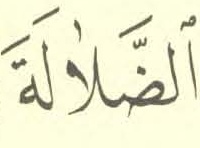 ٱلضَّلَٰلَةَ